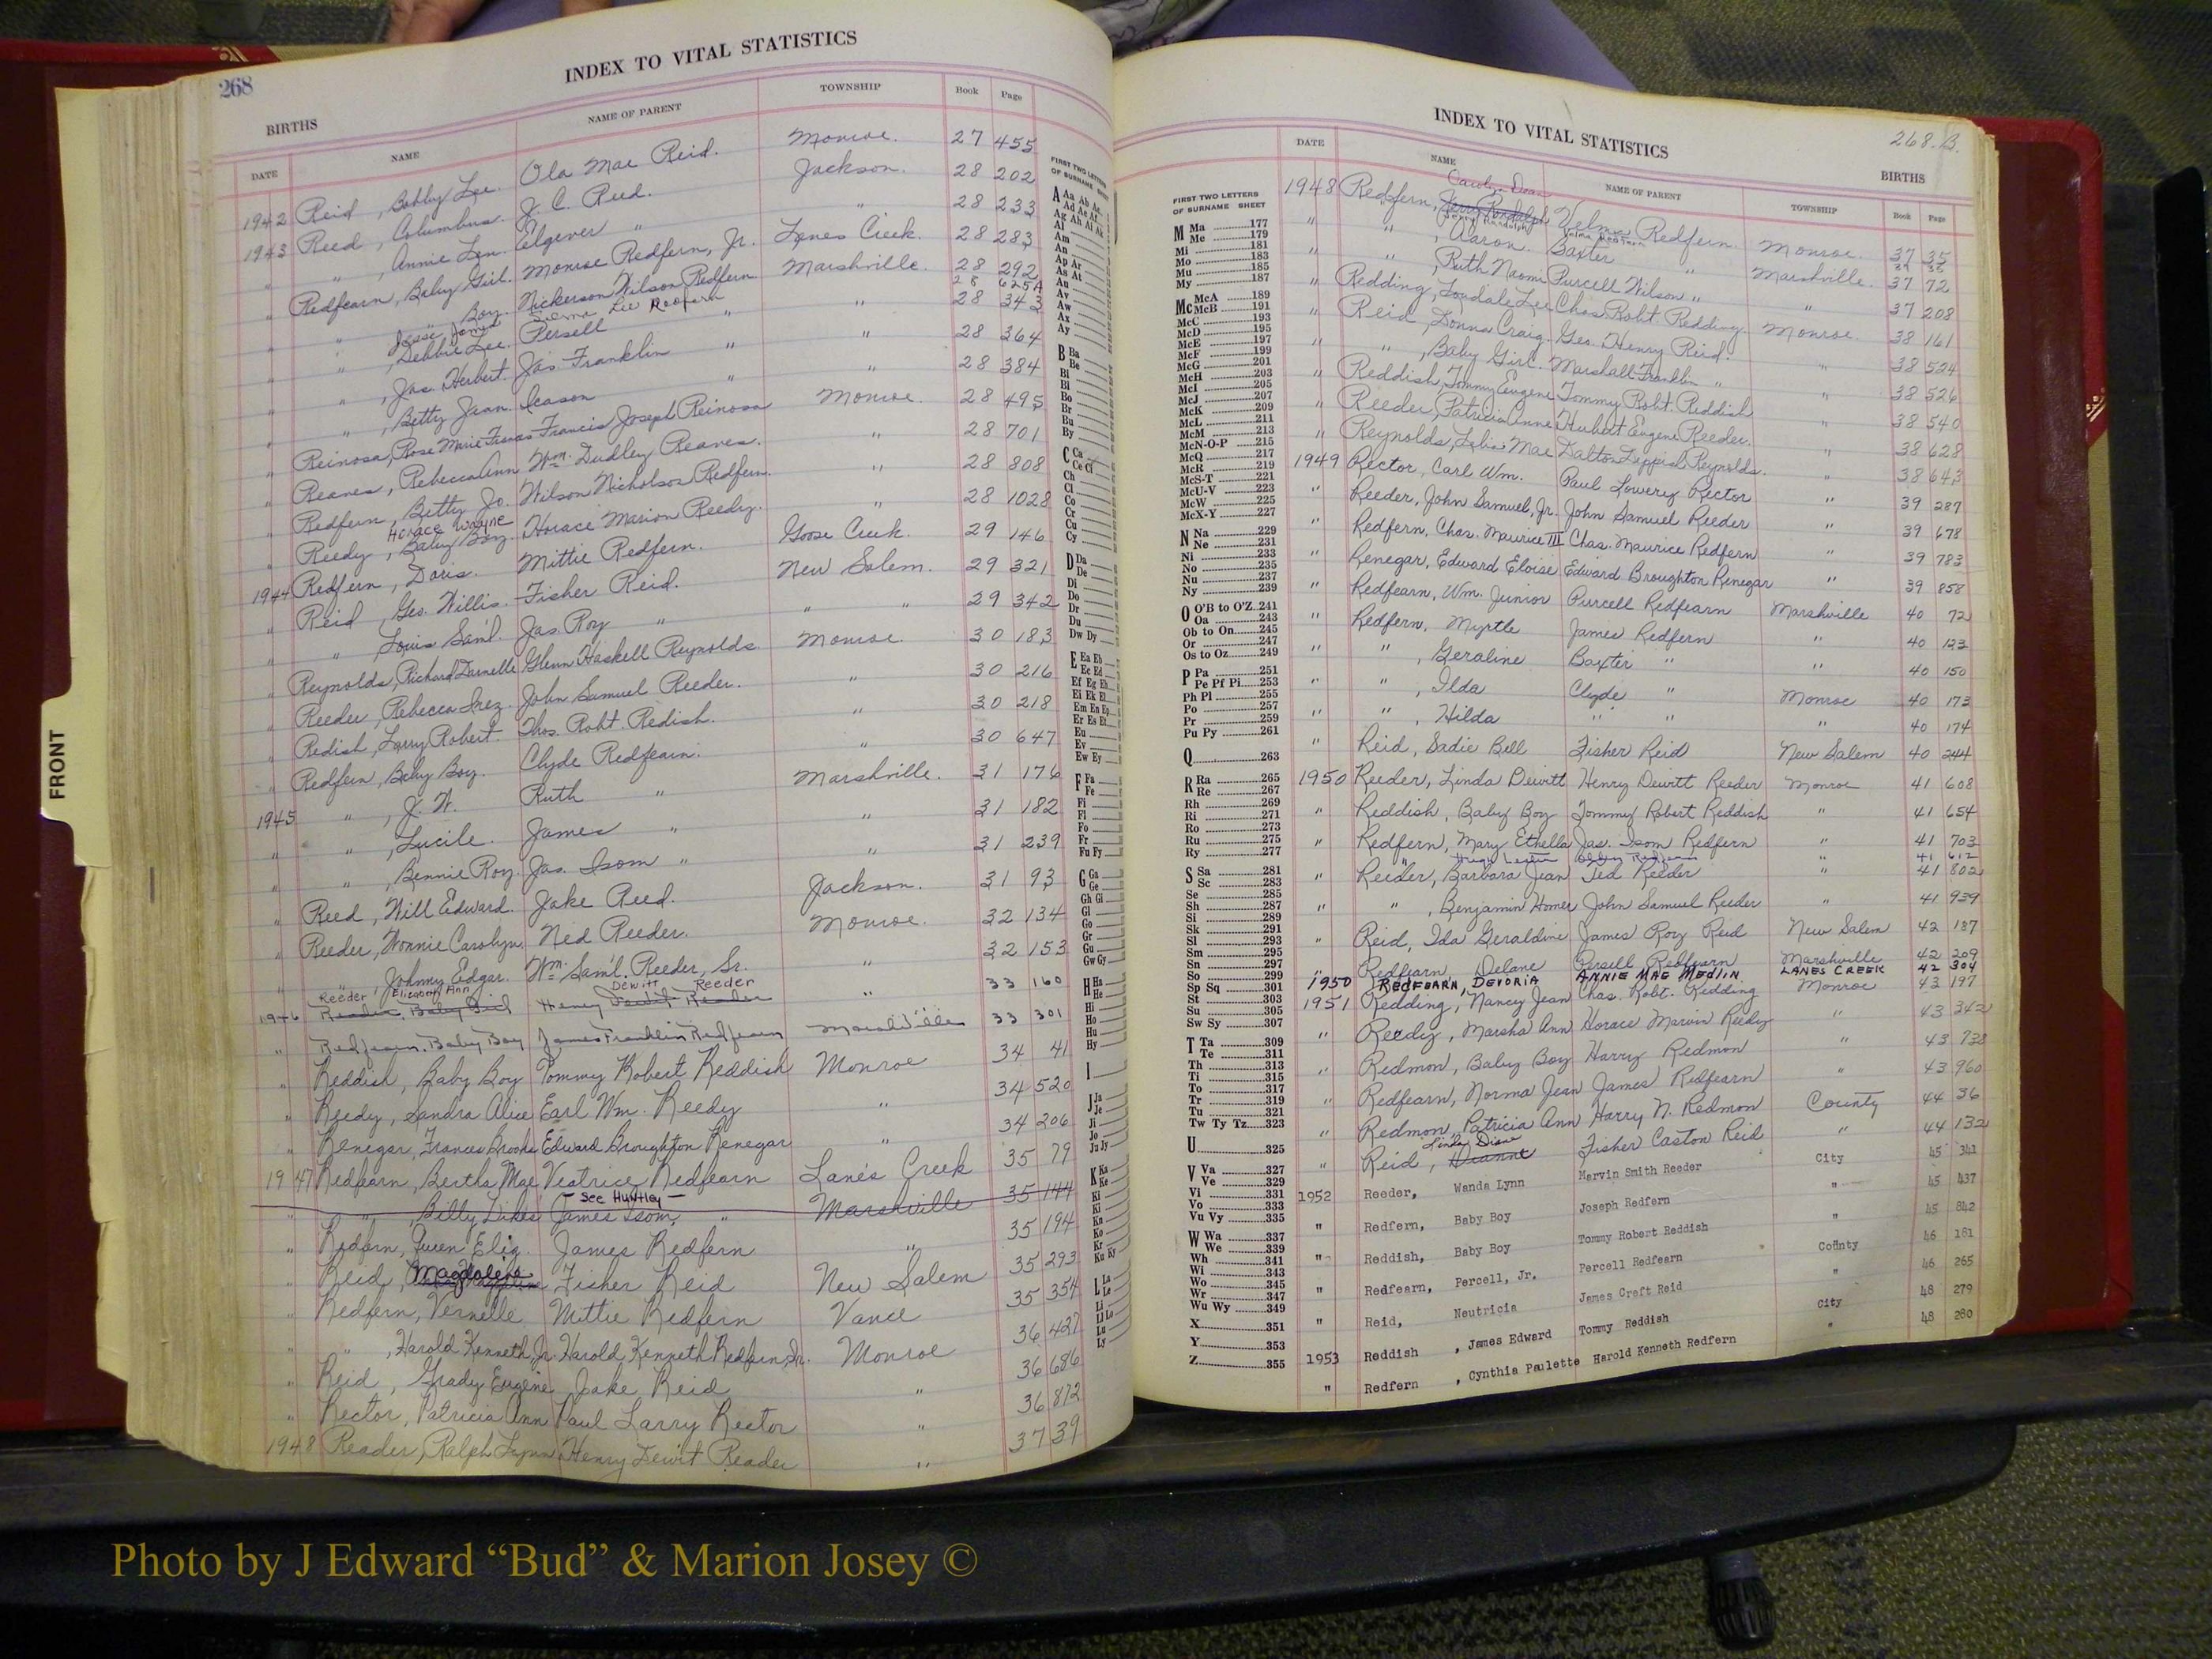 268
INDEX TO VITAL STATISTICS
BIRTHS
DATE NAME NAME OF PARENT TOWNSHIP Book Page
1942 Reid, Bobby Lee. Ola Mae Reid. Monroe. 27 455
1943 Reed, Columbus. J. C. Reed. Jackson. 28 202
" " , Annie Len. Elgever " " 28 233
" Redfearn, Baby Girl. Monroe Redfern, Jr. Lanes Creek. 28 283
" " Boy. Nickerson Wilson Redfern Marshville. 28 292
Jesse James Lee Redfern 28 625A
" " , Debbie Lee. Persell " " 28 343
" " , Jas. Herbert. Jas. Franklin " " 28 364
" " , Betty Jean. Icason " " 28 384
" Reinosa, Rose Marie Francis Joseph Reinosa Monroe. 28 495
" Reaves, Rebecca Ann Wm. Dudley Reaves. " 28 701
" Redfern, Betty Jo. Wilson Nicholson Redfern. " 28 808
Horace Wayne
" Reedy, Baby Boy. Horace Marion Reedy. " 28 1028
1944 Redfern, Doris. Mittie Redfern. Goose Creek. 29 146
" Reid, Geo. Willis. Fisher Reid. New Salem. 29 321
" " , Louis Sam'l. Jas. Roy " " " 29 342
" Reynolds, Richard Darnelle Glenn Haskell Reynolds. Monroe. 30 183
" Reeder, Rebecca Inez. John Samuel Reeder. " 30 216
" Redish, Larry Robert. Thos. Robt. Redish. " 30 218
" Redfern, Baby Boy. Clyde Redfearn. " 30 647
1945 " , J. W. Ruth " Marshville. 31 176
" " , Lucile. James " " 31 182
" " , Bennie Roy. Jas. Isom " " 31 239
" Reed, Will Edward. Jake Reed. Jackson. 31 93
" Reeder, Wonnie Carolyn. Ned Reeder. Monroe. 32 134
" " , Johnny Edgar. Wm. Sam'l. Reeder, Sr. " 32 153
Reeder Elizabeth Ann Dewitt Reeder
1946 Reeder, Baby Girl Henry Reeder " 33 160
" Redfearn, Baby Boy James Franklin Redfearn Marshville 33 301
" Reddish, Baby Boy Tommy Robert Reddish Monroe 34 41
" Reedy, Sandra Alice Earl Wm. Reedy " 34 520
" Renegar, Frances Brooks Edward Broughton Renegar " 34 206
1947 Redfearn, Bertha Mae Veatrice Redfearn Lanes Creek 35 79
— See Huntley —
" " , Billy Dikes James Isom, " Marshville 35 144
" Redfern, Queen Eliz. James Redfern " 35 194
" Reid, Magdalene Fisher Reid New Salem 35 293
" Redfern, Vernelle Mittie Redfern Vance 35 354
" " , Harold Kenneth, Jr. Harold Kenneth Redfern, Sr. Monroe 36 427
" Reid, Grady Eugene Jake Reid " 36 686
" Rector, Patricia Ann Paul Larry Rector " 36 872
1948 Reader, Ralph Lynn Henry Dewit Reader " 37 39
FIRST TWO LETTERS
OF SURNAME SHEET
A Aa Ab Ac
Ad Ae Af
Ag Ah Ai Ak
Al
Am
An
Ap Ar
As At
Au
Av
Aw
Ax
Ay
B Ba
Be
Bi
Bl
Bo
Br
Bu
By
C Ca
Ce Ci
Ch
Cl
Co
Cr
Cu
Cy
D Da
De
Di
Do
Dr
Du
Dw Dy
E Ea Eb
Ec Ed
Ef Eg Eh
Ei Ek El
Em En Ep
Er Es Et
Eu
Ev
Ew Ey
F Fa
Fe
Fi
Fl
Fo
Fr
Fu Fy
G Ga
Ge
Gh Gi
Gl
Go
Gr
Gu
Gw Gy
H Ha
He
Hi
Ho
Hu
Hy
I
J Ja
Je
Ji
Jo
Ju Jy
K Ka
Ke
Ki
Kl
Kn
Ko
Kr
Ku Ky
L La
Le
Li
Ll Lo
Lu
Ly
FRONT
INDEX TO VITAL STATISTICS
268-B.
BIRTHS
DATE NAME NAME OF PARENT TOWNSHIP Book Page
FIRST TWO LETTERS
OF SURNAME SHEET
M Ma 177
Me 179
Mi 181
Mo 183
Mu 185
My 187
Mc McA 189
McB 191
McC 193
McD 195
McE 197
McF 199
McG 201
McH 203
McI 205
McJ 207
McK 209
McL 211
McM 213
McN-O-P 215
McQ 217
McR 219
McS-T 221
McU-V 223
McW 225
McX-Y 227
N Na 229
Ne 231
Ni 233
No 235
Nu 237
Ny 239
O O'B to O'Z 241
Oa 243
Ob to On 245
Or 247
Os to Oz 249
P Pa 251
Pe Pf Pi 253
Ph Pl 255
Po 257
Pr 259
Pu Py 261
Q 263
R Ra 265
Re 267
Rh 269
Ri 271
Ro 273
Ru 275
Ry 277
S Sa 281
Sc 283
Se 285
Sh 287
Si 289
Sk 291
Sl 293
Sm 295
Sn 297
So 299
Sp Sq 301
St 303
Su 305
Sw Sy 307
T Ta 309
Te 311
Th 313
Ti 315
To 317
Tr 319
Tu 321
Tw Ty Tz 323
U 325
V Va 327
Ve 329
Vi 331
Vo 333
Vu Vy 335
W Wa 337
We 339
Wh 341
Wi 343
Wo 345
Wr 347
Wu Wy 349
X 351
Y 353
Z 355
Carolyn Dean
1948 Redfern, Jerry Randolph Velma Redfern. Monroe. 37 35
Jerry Randolph Velma Redfern 37 35
" " , Aaron. Baxter " Marshville. 37 72
" " , Ruth Naomi Purcell Wilson " " 37 208
" Redding, Loudale Lee Chas. Robt. Redding. Monroe. 38 161
" Reid, Donna Craig. Geo. Henry Reid. " 38 524
" " , Baby Girl. Marshall Franklin " " 38 526
" Reddish, Tommy Eugene Tommy Robt. Reddish " 38 540
" Reeder, Patricia Anne Hubert Eugene Reeder. " 38 628
" Reynolds, Lelia Mae Dalton Reynolds. " 38 643
1949 Rector, Carl Wm. Paul Lowery Rector " 39 287
" Reeder, John Samuel, Jr. John Samuel Reeder " 39 678
" Redfern, Chas. Maurice III Chas. Maurice Redfern " 39 783
" Renegar, Edward Eloise Edward Broughton Renegar " 39 858
" Redfearn, Wm. Junior Purcell Redfearn Marshville 40 72
" Redfern, Myrtle James Redfern " 40 123
" " , Geraline Baxter " " 40 150
" " , Ilda Clyde " Monroe 40 173
" " , Hilda " " " 40 174
" Reid, Sadie Bell Fisher Reid New Salem 40 244
1950 Reeder, Linda Dewitt Henry Dewitt Reeder Monroe 41 608
" Reddish, Baby Boy Tommy Robert Reddish " 41 654
" Redfern, Mary Ethella Jas. Isom Redfern " 41 703
" Hugh Redfern " 41 612
" Reeder, Barbara Jean Ted Reeder " 41 802
" " , Benjamin Homer John Samuel Reeder " 41 939
" Reid, Ida Geraldine James Roy Reid New Salem 42 187
" Redfearn, Delane Persell Redfearn Marshville 42 209
1950 REDFEARN, DEVORIA ANNIE MAE MEDLIN LANES CREEK 42 304
1951 Redding, Nancy Jean Chas. Robt. Redding Monroe 43 197
" Reedy, Marsha Ann Horace Marvin Reedy " 43 342
" Redmon, Baby Boy Harry Redmon " 43 738
Redfearn, Norma Jean James Redfearn " 43 960
" Redmon, Patricia Ann Harry N. Redmon County 44 36
Linda Diane
" Reid, Dianne Fisher Caston Reid " 44 132
1952 Reeder, Wanda Lynn Marvin Smith Reeder City 45 341
" Redfern, Baby Boy Joseph Redfern " 45 437
" Reddish, Baby Boy Tommy Robert Reddish " 45 842
" Redfearn, Percell, Jr. Percell Redfearn County 46 181
" Reid, Neutricia James Croft Reid " 46 265
1953 Reddish , James Edward Tommy Reddish City 48 279
" Redfern , Cynthia Paulette Harold Kenneth Redfern " 48 280
Photo by J Edward “Bud” & Marion Josey ©